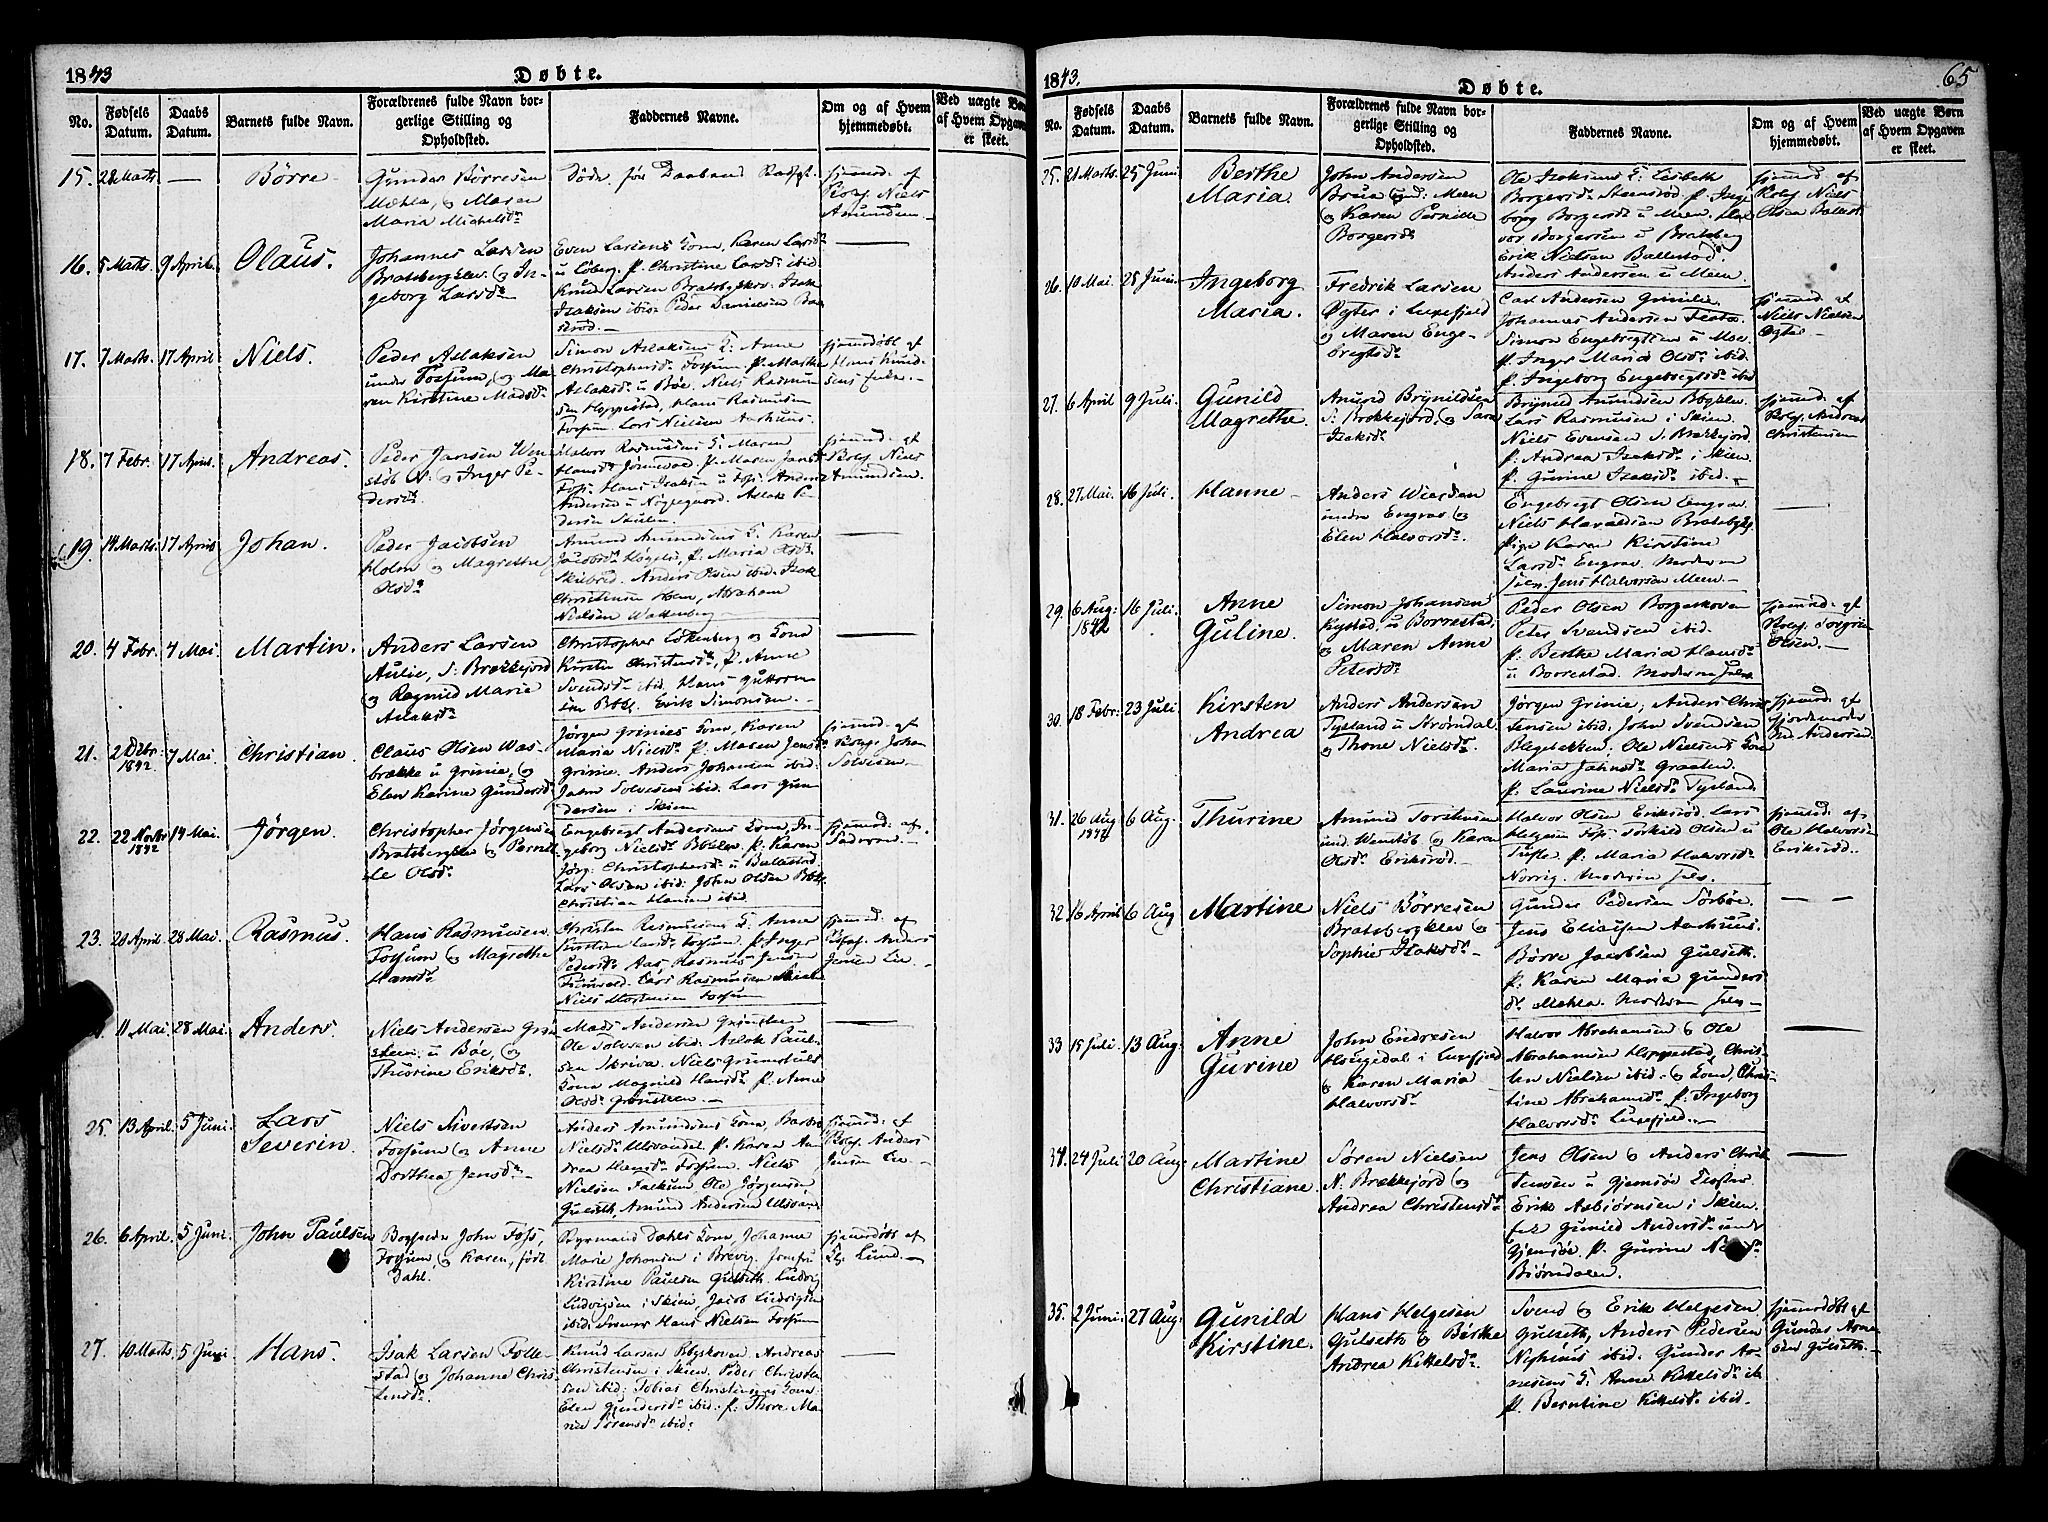 1843
Døbte.
No.
Fødsels Datum.
Daabs Datum.
Barnets fulde Navn.
Forældrenes fulde Navn borgerlige Stilling og Opholdsted.
Faddernes Navne.
Om og af Hvem hjemmedøbt.
Ved uægte Børn af Hvem Opgaven er skeet.
15. 28 Marts. — Börre
Gunder Börresen
Mæhla, og Maren
Maria Michelsdr
Döde før Daaben
hjemmed: af
Niels
Amundsen
16. 5 Marts. 9 April. Olaus.
Johannes Larsen
Bratsbergklev. og In-
geborg Larsdr
Even Larsens Kone, Karen Larsdr
u Löberg. P. Christine Larsdr ibid.
Knud Larsen
Isaksen ibid. Peder Danielsen
—
17. 7 Marts. 17 April Niels.
Peder Aslaksen
under Fossum, og Ma-
ren Kirstine Madsdr
Simon Aslaksens K: Anne
Christophersdr Fossum P. Marthe
Aslaksdr u Böe. Niels Rasmus-
sen Hoppestad, Hans Rasmusen
Fossum. Lars Nielsen Aarhuus.
hjemmedöbt af
18. 7 Febr. 17 April. Andreas.
Peder Jansen Wen-
stöb og Inger Pe-
dersdr
Halvor Rasmusens K. Maren
Hansdr P. Maren Jansdr
Foss. Hans Isaksen u Foss. Anders
Andersen
dersen
hjemmed: af
Niels
Amundsen.
19. 14 Marts. 17 April Johan.
Peder Jacobsen
Holm og Magrethe
Olsdr
Amund Amundsens K. Karen
Jacobsdr P. Maria Olsdr
Anders Olsen ibid. Isak
Christensen Abraham
Nielsen
—
20. 4 Febr. 7 Mai Martin.
Anders Larsen
Aulie, S: Brækkejord
og Ragnild Maria
Aslaksdr
Christopher og Kone
Kirsten Christensdr, P. Anne
Svendsdr ibid. Hans Guttorm-
sen Erik Simonsen
—
21. 2 Debr 1842 7 Mai. Christian.
Claus Olsen Was-
brække u Grinie, og
Elen Karine Gundersdr
Jörgen Grinies Kone, Karen
Maria Nielsdr P. Maren Jensdr
Grinie. Anders Johansen ibid.
John Solvesen ibid. Lars Gun-
dersen i Skien
hjemmed: af
Johan
Solvesen
22. 22 Novbr 1842 14 Mai. Jörgen.
Christopher Jörgensen
Bratsbergklev og Pernil-
le Olsdr
Engebregt Andersens Kone, In-
geborg Nielsdr P. Karen
Jörg: Christophersdr u Ballestad
Lars Olsen ibid: John Olsen
Christian Hansen ibid.
hjemmed: af
Faderen.
23. 20 April. 28 Mai. Rasmus.
Hans Rasmussen
Fossum og Magrethe
Hansdr
Christen Rasmusens K. Anne
Kirstine Larsdr Fossum. P. Inger
Pedersdr Aas Rasmus Jensen
Lars Rasmussen
Niels Mortensen Fossum
hjemmed: af
Anders
Jensen Lie
11 Mai 28 Mai. Anders
Niels Andersen Grön-
steen u Böe, og
Thorine Eriksdr
Mads Andersen Grönsteen
Ole Tolvsen ibid. Aslak Paul-
sen Skrive. Niels
Kone Magnild Hansdr P. Anne
Olsdr Grönsteen.
—
25. 13 April. 5 Juni. Lars
Severin.
Niels Sivertsen
Fossum og Anne
Dorthea Jensdr
Anders Amundsens Kone, Barbro
Nielsdr Ulsvandet. P. Karen An-
drea Hansdr Fossum. Niels
Nielsen Falkum, Ole Jörgensen
Gulseth, Amund Andersen Ulsvand
hjemmed: af
Anders
Jensen Lie
26. 6 April. 5 Juni. John Paulsen
John Foss,
Fossum, og Karen, födt
Dahl.
Dahls Kone, Johanna
Marie Johansen i Brevig. Jomfru
Kirstine Paulsen Gulseth. Ludvig
Ludvigsen i Skien, Jacob Ludvigsen
ibid. Hans Nielsen Fossum
hjemmedöbt af
Lund.
27. 10 Marts 5 Juni Hans.
Isak Larsen Folle-
stad og Johanne Chris-
tensdr
Knud Larsen Andreas
Christensen i Skien. Peder Christen-
sen ibid: Tobias Christensens Kone
Elen Gundersdr ibid. P. Thore Ma-
ria Sörensdr ibid
—
1843.
Døbte.
65
No.
Fødsels Datum.
Daabs Datum.
Barnets fulde Navn.
Forældrenes fulde Navn borgerlige Stilling og Opholdsted.
Faddernes Navne.
Om og af Hvem hjemmedøbt.
Ved uægte Børn af Hvem Opgaven er skeet.
25. 21 Marts. 25 Juni Berthe
Maria.
John Andersen
Bruu und: Meen
og Karen Pernille
Borgersdr
Ole Isaksens K: Lisbeth
Borgersdr Steensrød P. Inge-
borg Borgersdr u Meen. Hal-
vor Borgersen u Bratsberg
Erik Nielsen Ballestad.
Anders Andersen u Meen.
hjemmed: af
Niels
Olsen Ballest.
26. 10 Mai. 25 Juni. Ingeborg
Maria.
Fredrik Larsen
Ogter i Luxefjeld
og Maren Enge-
bregtsdr
Carl Andersen Grinilie.
Johannes Andersen
Simon Engebregtsen u Moe
P. Inger Maria Olsdr ibid.
P. Ingeborg Engebregtsdr ibid
hjemmed: af
Niels Nielsen
Ogter
27. 6 April 9 Juli. Gunild
Magrethe.
Amund Brynildsen
S. Brækkejord, og Sara
Isaksdr
Brynild Amundsen
Lars Rasmusen i Skien.
Niels Evensen S. Brækkejord
P. Andrea Isaksdr i Skien.
P. Gurine Isaksdr ibid.
hjemmed: af
Andreas
Christensen
28. 27 Mai. 16 Juli. Hanne
Anders
under Engrav og
Elen Halvorsdr.
Engebregt Olsen Engrav
Niels Haraldsen
Pige Karen Kirstine
Larsdr Engrav. Moderen
selv. Jens Halvorsen Meen.
—
29. 6 Aug: 1842 16 Juli. Anne
Guline.
Simon Johansen
u Borrestad,
og Maren Anne
Petersdr
Peder Olsen Borgeskoven
Peter Svendsen ibid.
P. Berthe Maria Hansdr
u Borrestad. Moderen selv
hjemmed: af
Olsen.
30. 18 Febr: 23 Juli Kirsten
Andrea
Anders Andersen
Tysland u Strömdal
og Thone Nielsdr
Jörgen Grinie, Anders Chris-
tensen ibid. John Svendsen
Bægebakken. Ole Nielsens Kone
Maria Jahnsdr Graaten.
P. Laurine Nielsdr Tysland
hjemmed: af
Gjordemoder
Andersen.
31. 26 Aug 1842 6 Aug. Thurine
Amund Torstensen
und. Wenstöb og Karen
Olsdr Eriksröd
Halvor Olsen Eriksröd. Lars
Helgesen Foss. Torkild Olsen u
Tufte P. Maria Halvorsdr
Norrig. Moderen selv.
hjemmed: af
Ole Halvors.
Eriksröd.
32. 16 April 6 Aug Martine
Niels Börresen
Bratsbergklev og
Sophie Isaksdr
Gunder Pedersen Sörböe.
Jens Eliassen Aarhuus.
Börre Jacobsen Gulseth.
P. Karen Maria Gunders-
dr Mæhla. Moderen selv
—
33 15 Juli. 13 Aug. Anne
Gurine
John Endresen
Hougedal i Luxefjeld
og Karen Maria
Halvorsdr
Halvor Abrahamsen og Ole
Abrahamsen Hoppestad, Chris-
ten Nielsen ibid. og Kone, Chris-
tine Abrahamsdr P. Ingeborg
Halvorsdr Luxefjeld.
—
34. 24 Juli 20 Aug: Martine
Christiane.
Sören Nielsen
N. Brækkejord og
Andrea Christensdr
Jens Olsen og Anders Chris-
tensen u Gjemsöe Kloster
Erik Asbiörnsen i Skien.
Gunild Andersdr under
Gjemsöe. P. Gurine
Biörndalen.
—
35. 2 Juni. 27 Aug: Gunild
Kirstine.
Hans Helgesen
Gulseth og Birthe
Andrea Kittelsdr
Svend og Erik Helgesen
Gulseth, Anders Pedersen
Nyhuus ibid. Gunder Ar-
nesens K. Anne Kittelsdr ib
P. Berntine Kittelsdr ibid.
hjemmedöbt af
Gunder Arne-
sen Gulseth.